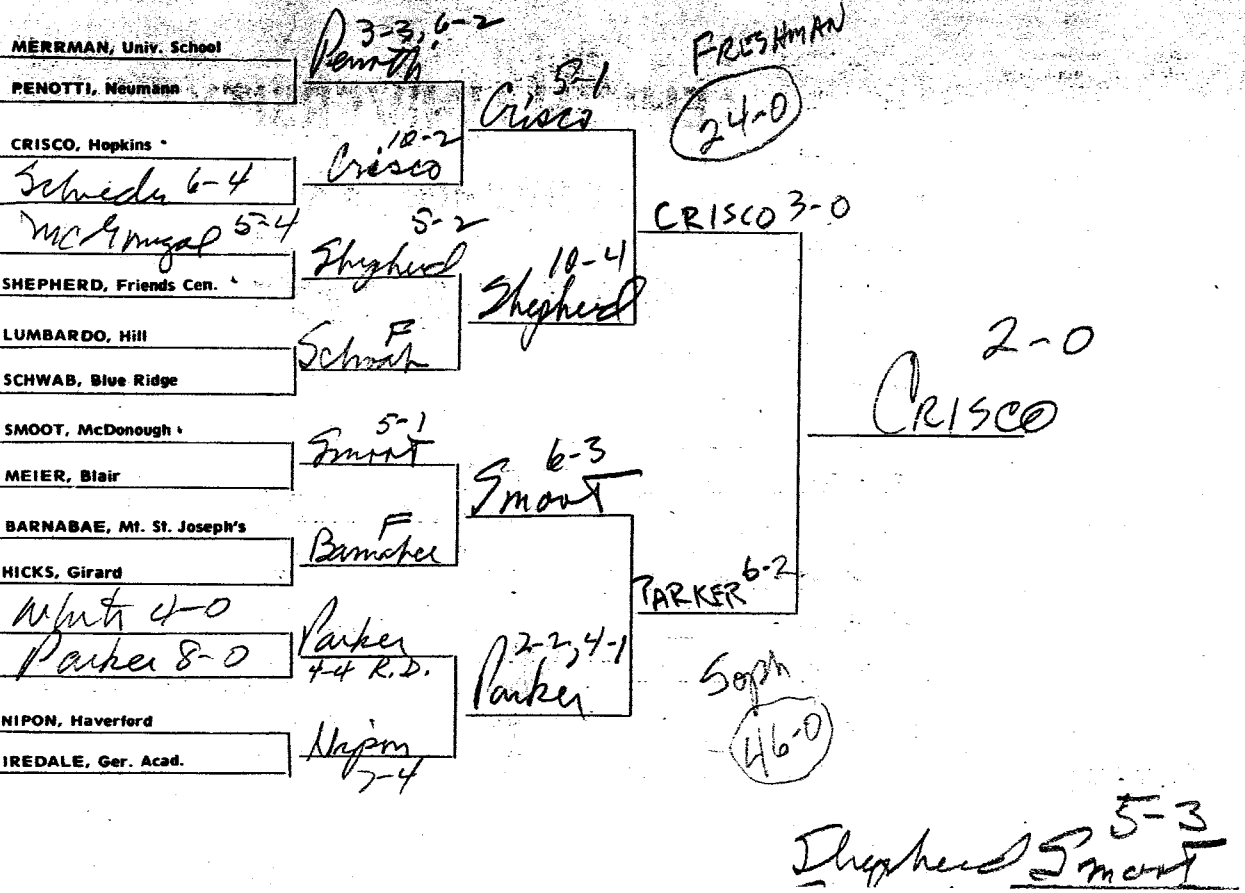 MERRMAN, Univ. School
PENOTTI, Neumann
CRISCO, Hopkins
6-4
5-4
SHEPHERD, Friends Cen.
LUMBARDO, Hill
SCHWAB, Blue Ridge
SMOOT, McDonough
MEIER, Blair
BARNABAE, Mt. St. Joseph's
HICKS, Girard
White 4-0
Parker 8-0
NIPON, Haverford
IREDALE, Ger. Acad.
3-3, 6-2
10-2
Crisco
5-2
Shepherd
F
Schwab
5-1
Smoot
F
Barnabae
Parker
4-4 R.D.
Nipon
7-4
5-1
Crisco
10-4
Shepherd
6-3
Smoot
2-2, 4-1
Parker
FRESHMAN
24-0
CRISCO 3-0
PARKER 6-2
Soph
46-0
2-0
CRISCO
5-3
Shepherd Smoot